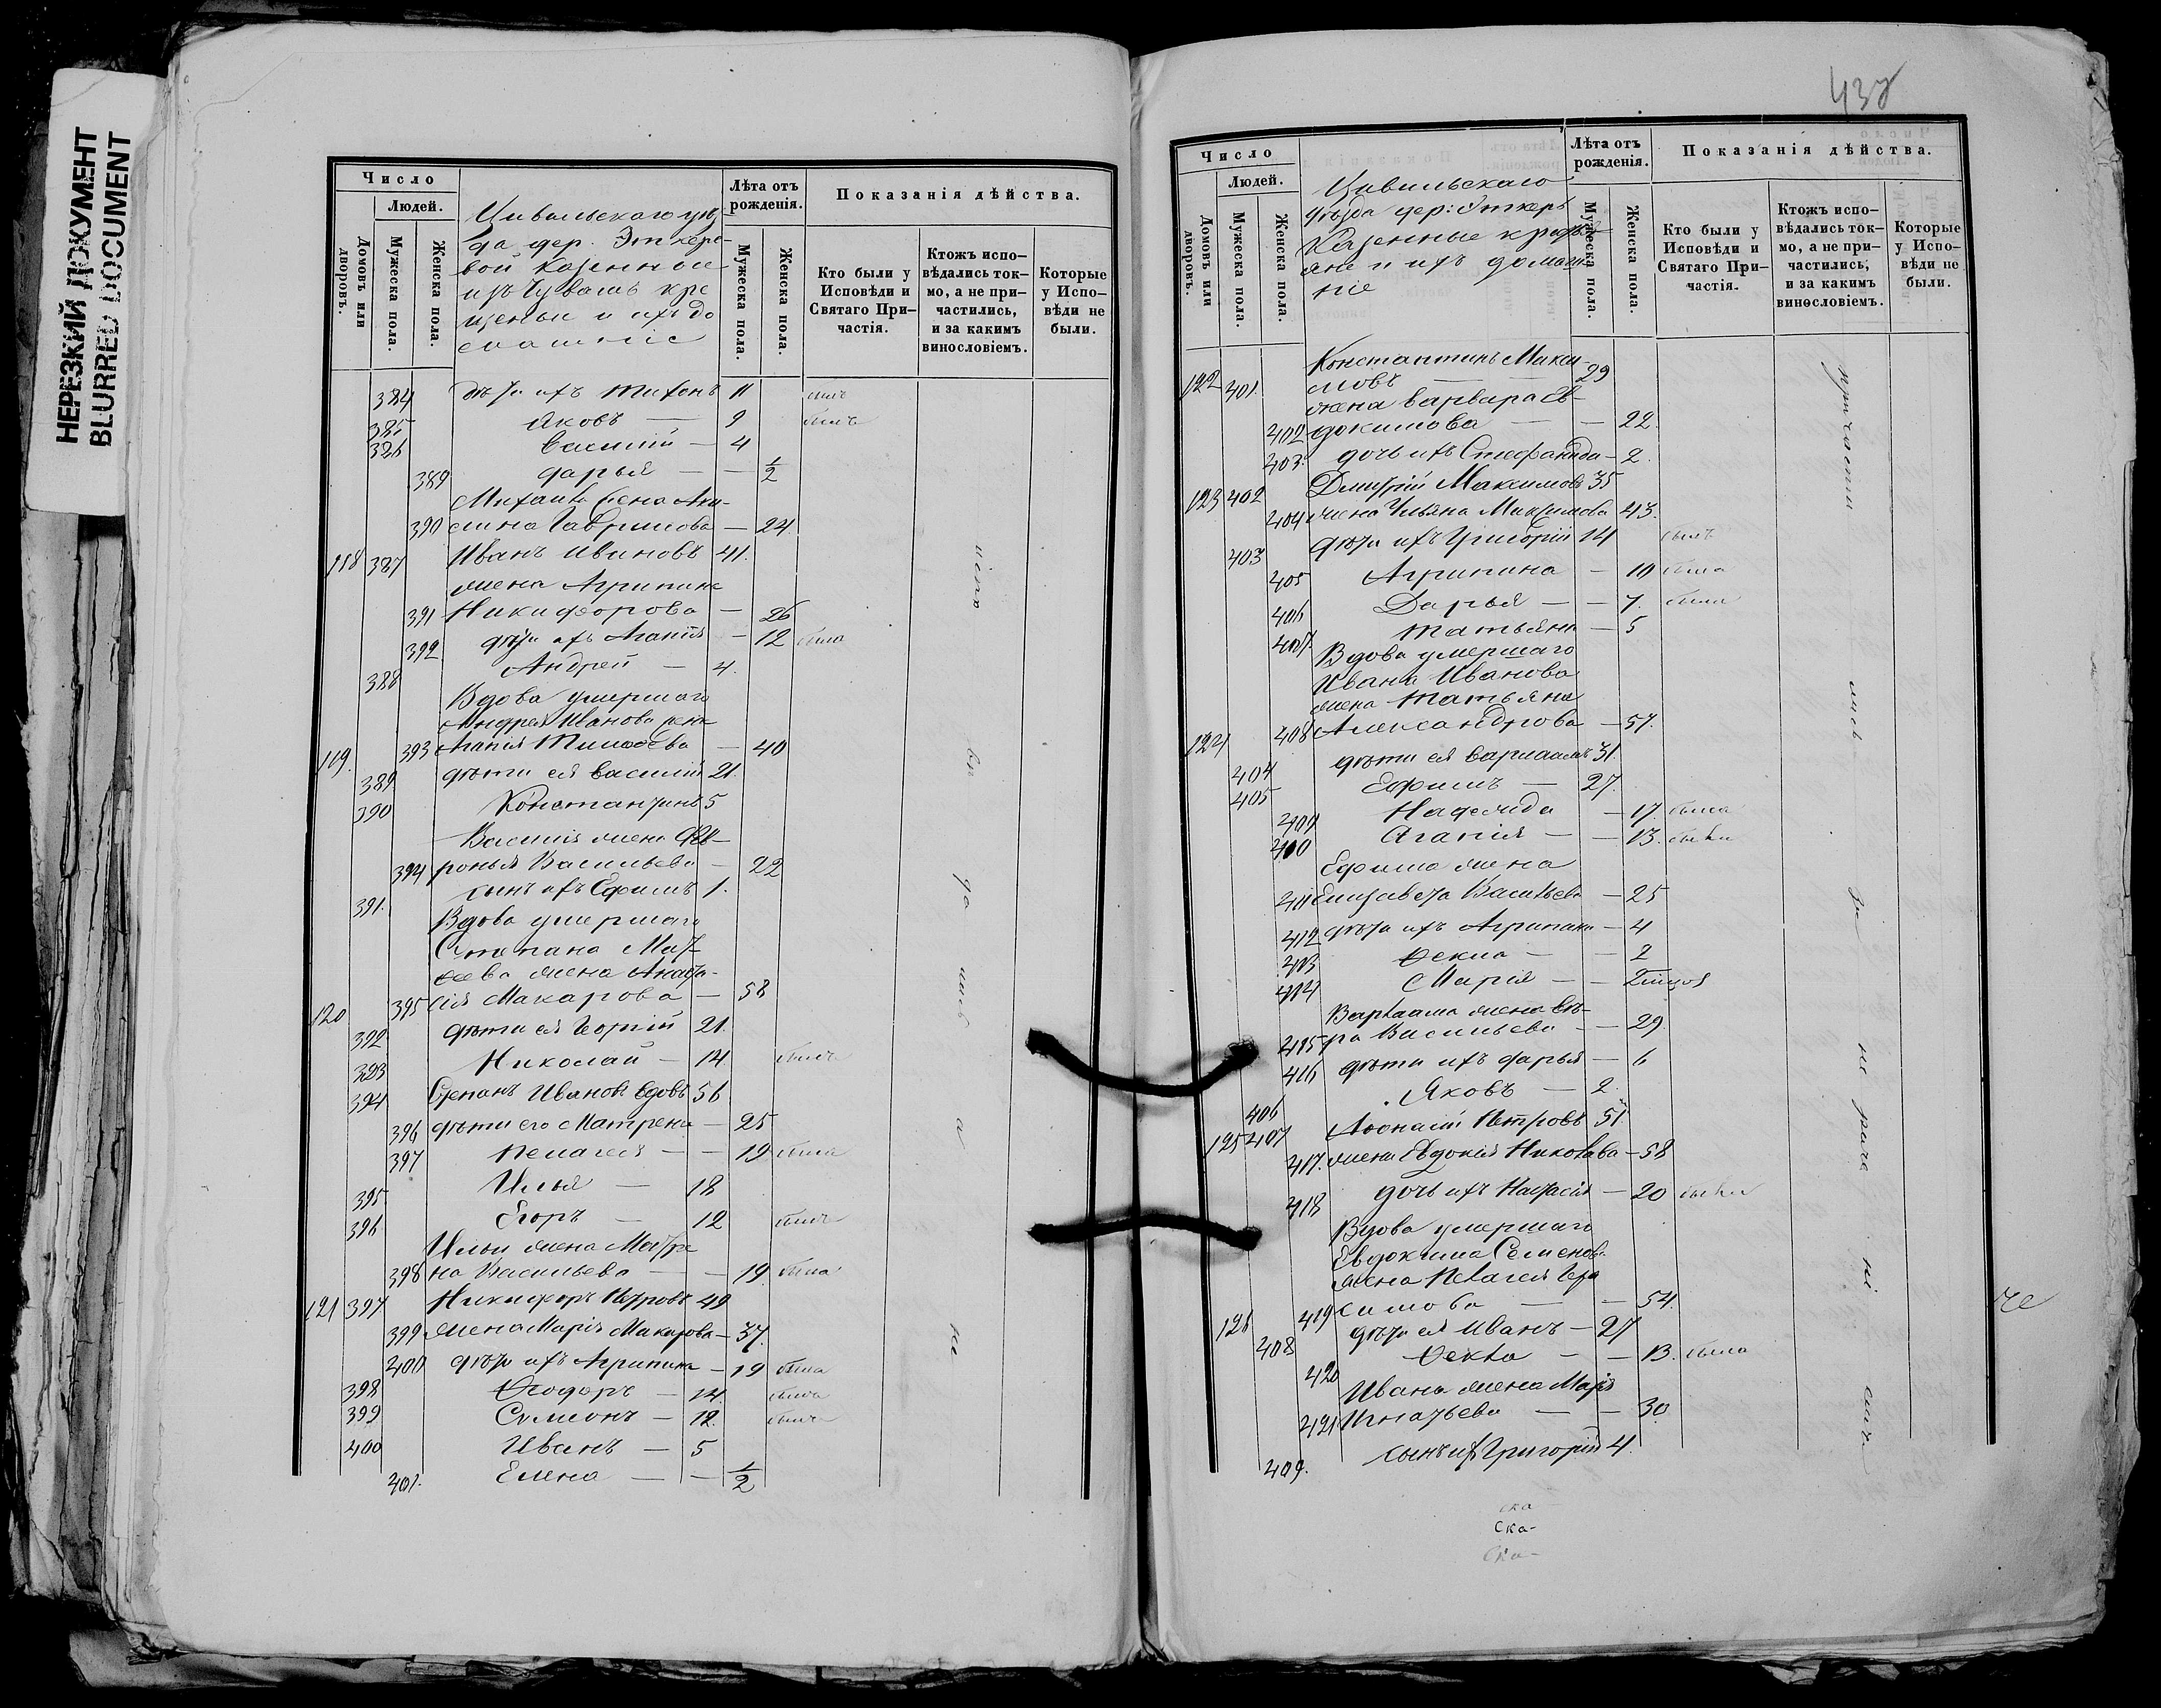 НЕРЕЗКИЙ ДОКУМЕНТ
BLURRED DOCUMENT
Число
Людей.
Домовъ или дворовъ.
Мужеска пола.
Женска пола.
Цивильскаго уѣз-
да дер. Эткере-
вой казенные
изъ Чувашъ кре
щеныи и ихъ до
машніе
Лѣта отъ рожденія.
Мужеска пола.
Женска пола.
Показанія дѣйства.
Кто были у Исповѣди и Святаго При-частія.
Ктожъ испо-вѣдались ток-мо, а не при-частились, и за какимъ винословіемъ.
Которые у Испо-вѣди не были.
384 дѣти ихъ Тихонъ 11 былъ
385 Яковъ — 9 былъ
386 Василій — 4
389 Дарья — — ½
Михаила жена Аку-
390 лина Гаврилова — 24
118 387 Иванъ Ивановъ 41.
жена Агрипина
391 Никифорова — 26
392 дѣти ихъ Агапія — 12 была
388 Андрей — 4.
Вдова умершаго
Андрея Иванова жена
119. 393 Агапія Тимофѣева — 40
389 дѣти ея Василій 21.
390 Константинъ 5
Василія жена Фев-
394 ронья Васильева — 22
391. сынъ ихъ Ефимъ 1.
Вдова умершаго
Степана Мат-
ѳеева жена Анаста-
120 395 сія Макарова — 58
392 дѣти ея Георгій 21.
393 Николай — 14. былъ
394 Степанъ Ивановъ вдовъ 56
396 дѣти его Матрена — 25
397 Пелагея — — 19 была
395 Илья — 18
396 Егоръ — 12 былъ
Ильи жена Матре
398 на Васильева — — 19 была
121 397 Никифоръ Петровъ 49
399 жена Марія Макарова — 37.
400 дѣти ихъ Агрипина — 19 была
398 Ѳеодоръ — 14. былъ
399 Симеонъ — 12. былъ
400 Иванъ — 5
401. Елена — — ½
437
Число
Людей.
Домовъ или дворовъ.
Мужеска пола.
Женска пола.
Цивильскаго
уѣзда дер: Эткеръ
Казенные крестья
яне и ихъ домаш-
ніе
Лѣта отъ рожденія.
Мужеска пола.
Женска пола.
Показанія дѣйства.
Кто были у Исповѣди и Святаго При-частія.
Ктожъ испо-вѣдались ток-мо, а не при-частились, и за какимъ винословіемъ.
Которые у Испо-вѣди не были.
Константинъ Макси-
122 401. мовъ — — 29
жена Варвара Ев-
402 докимова — — 22.
403. дочь ихъ Стефанида — 2.
123 402 Дмитрій Максимовъ 35
404 жена Ульяна Максимова 43.
403 дѣти ихъ Григорій 14 былъ
405 Агрипина — 10 была
406 Дарья — — 7. была
407. Татьяна — 5
Вдова умершаго
Ивана Иванова
жена Татьяна
124 408 Александрова — 57.
404 дѣти ея Варлаамъ 31.
405 Ефимъ — 27.
409 Надежда — 17. была
410 Агапія — — 13. была
Ефима жена
411 Елизавета Васильева — 25
412 дѣти ихъ Агрипина — 4
413 Ѳекла — — 2
414 Марія — —
Варлаама жена Вѣ-
415 ра Васильева — — 29
416 дѣти ихъ Дарья — 6
406 Яковъ — 2
125 407 Аѳонасій Петровъ 51.
417. жена Евдокія Николаева — 58
418 дочь ихъ Настасія — 20 была
Вдова умершаго
Евдокима Семенова
жена Пелагея Гера
126 419 симова — — 54.
408 дѣти ея Иванъ — 27
420 Ѳекла — — 13. была
Ивана жена Марія
421 Игнатьева — — 30
409. сынъ ихъ Григорій 4.
ска
Ска-
Ска-
че